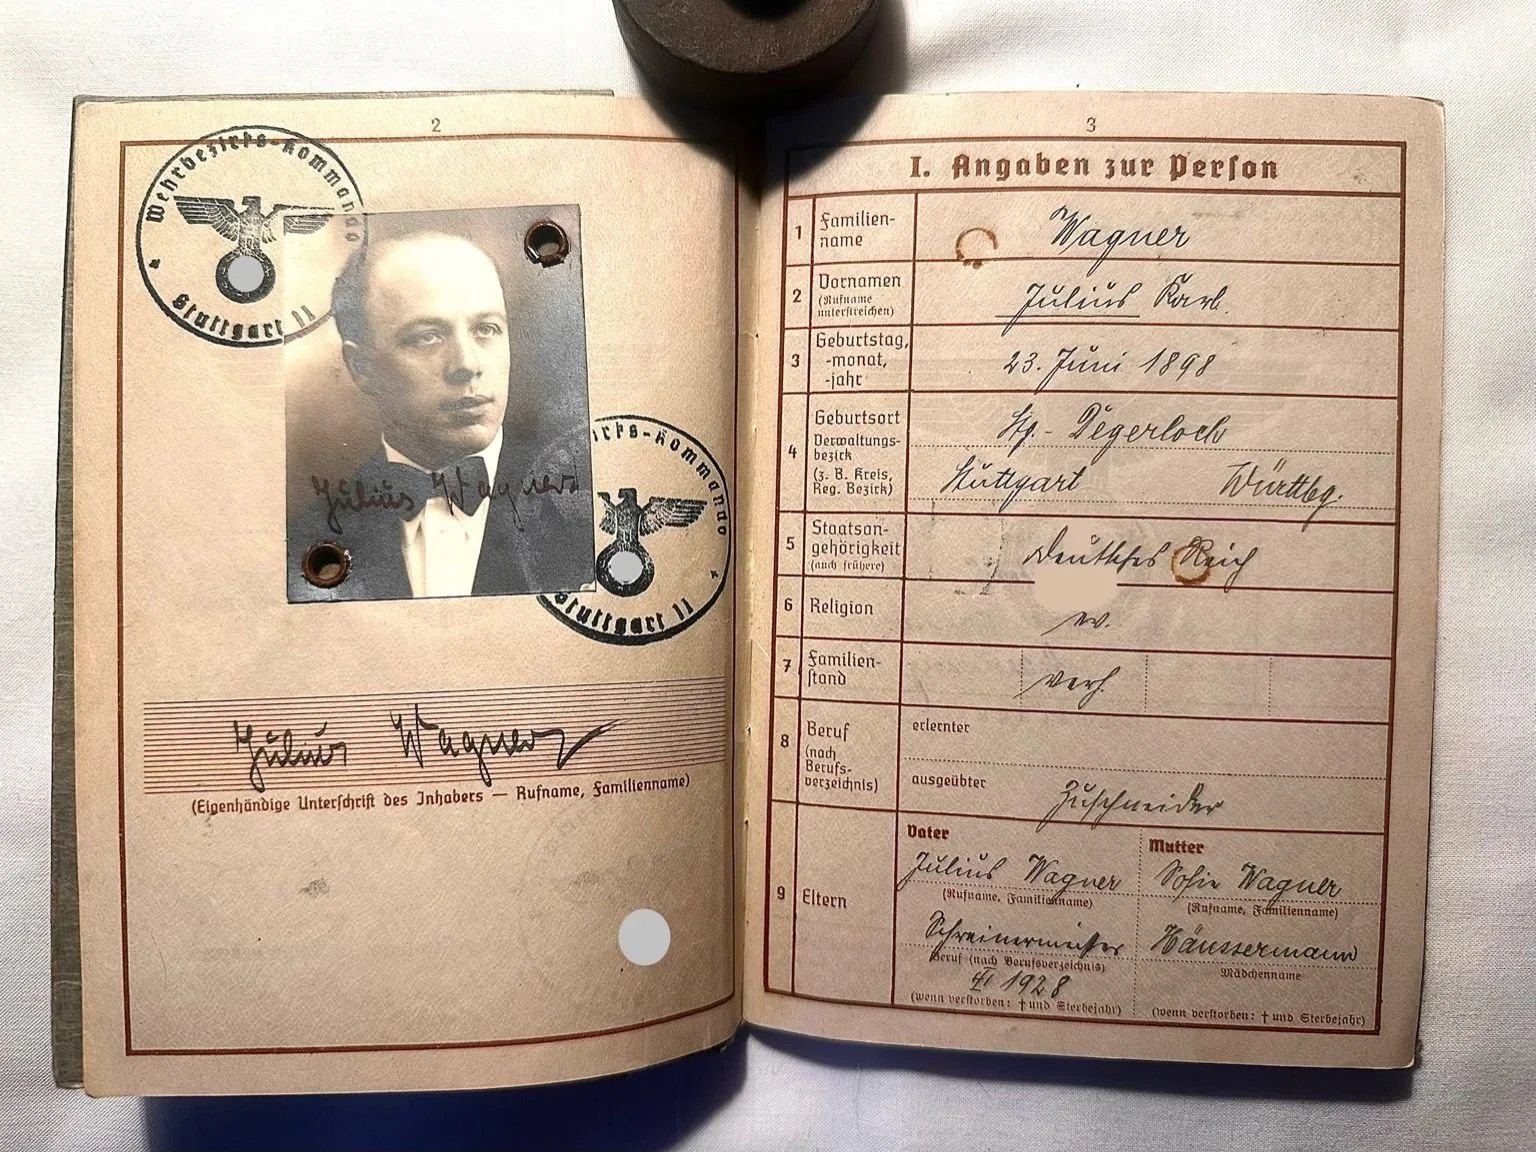 2
Wehrbezirks-Kommando
Stuttgart II
Julius Wagner
irks-Kommando
Stuttgart II
Julius Wagner
(Eigenhändige Unterſchrift des Inhabers — Rufname, Familienname)
3
I. Angaben zur Perſon
1 Familien-
name
Wagner
2 Vornamen
(Rufname
unterſtreichen)
Julius Karl.
3 Geburtstag,
-monat,
-jahr
23. Juni 1898
4 Geburtsort
Verwaltungs-
bezirk
(z. B. Kreis,
Reg. Bezirk)
Stg. - Degerloch
Stuttgart Württbg.
5 Staatsan-
gehörigkeit
(auch frühere)
Deutsches Reich
6 Religion
ev.
7 Familien-
ſtand
verh.
8 Beruf
(nach
Berufs-
verzeichnis)
erlernter
ausgeübter
Zuschneider
9 Eltern
Vater
Julius Wagner
(Rufname, Familienname)
Schreinermeister
Beruf (nach Berufsverzeichnis)
1928
(wenn verſtorben: † und Sterbejahr)
Mutter
Sofie Wagner
(Rufname, Familienname)
Häussermann
Mädchenname
(wenn verſtorben: † und Sterbejahr)